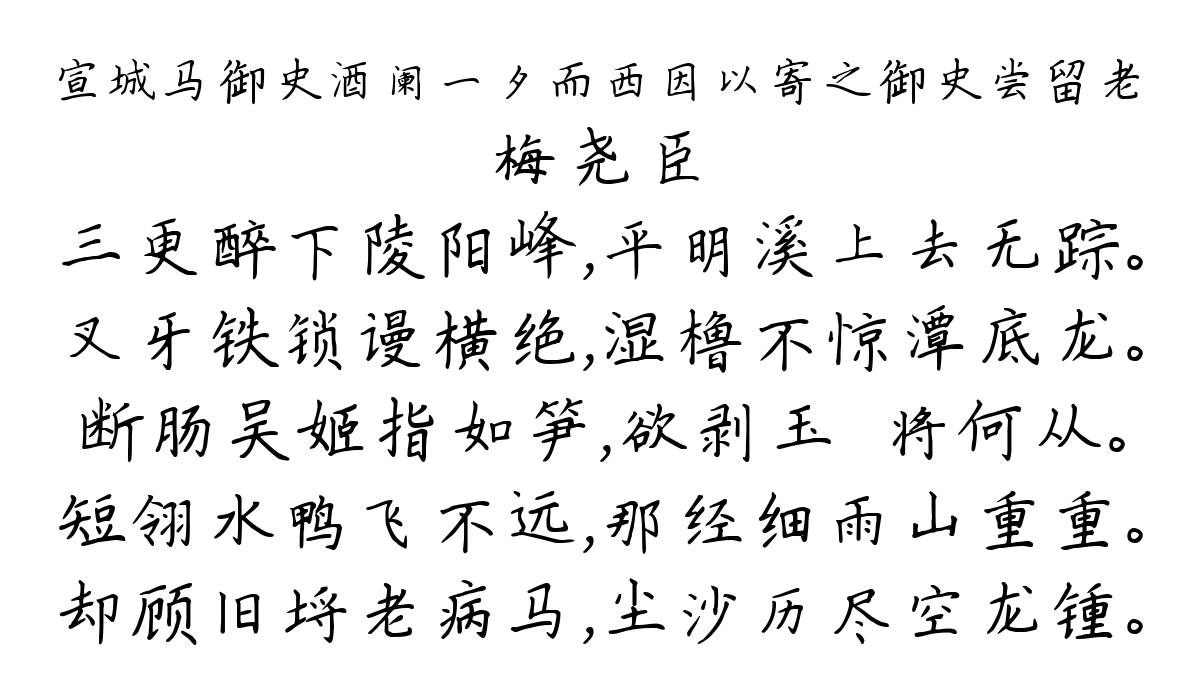 宣城马御史酒阑一夕而西因以寄之御史尝留老
梅尧臣
三更醉下陵阳峰,平明溪上去无踪。
叉牙铁锁谩横绝,湿橹不惊潭底龙。
断肠吴姬指如笋,欲剥玉 将何从。
短翎水鸭飞不远,那经细雨山重重。
却顾旧埒老病马,尘沙历尽空龙锺。